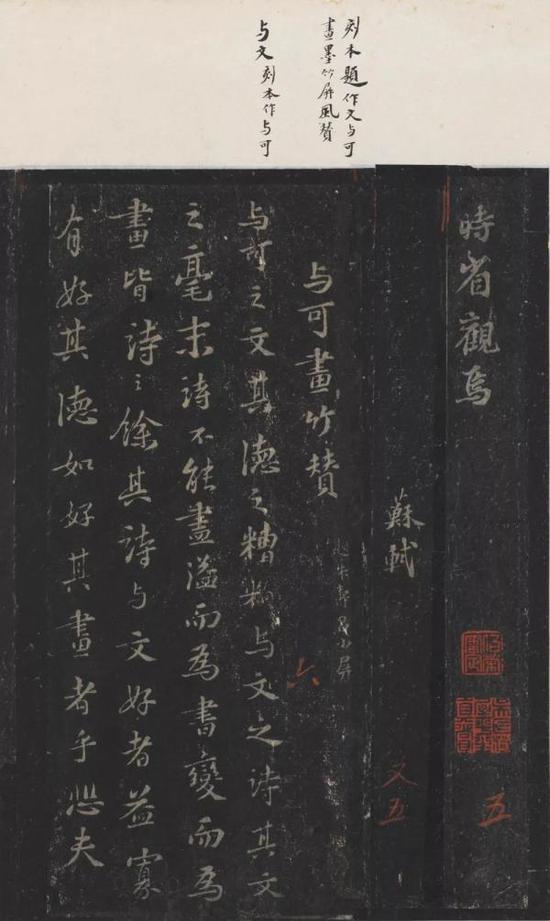 刻本題作文与可
畫墨竹屏風贊
与文刻本作与可
時省觀焉
蘇軾
与可畫竹贊
与可之文其德之糟粕与文之詩其文
之毫末詩不能盡溢而為書變而為
畫皆詩之餘其詩与文好者益寡
有好其德如好其畫者乎悲夫
五
又五
六